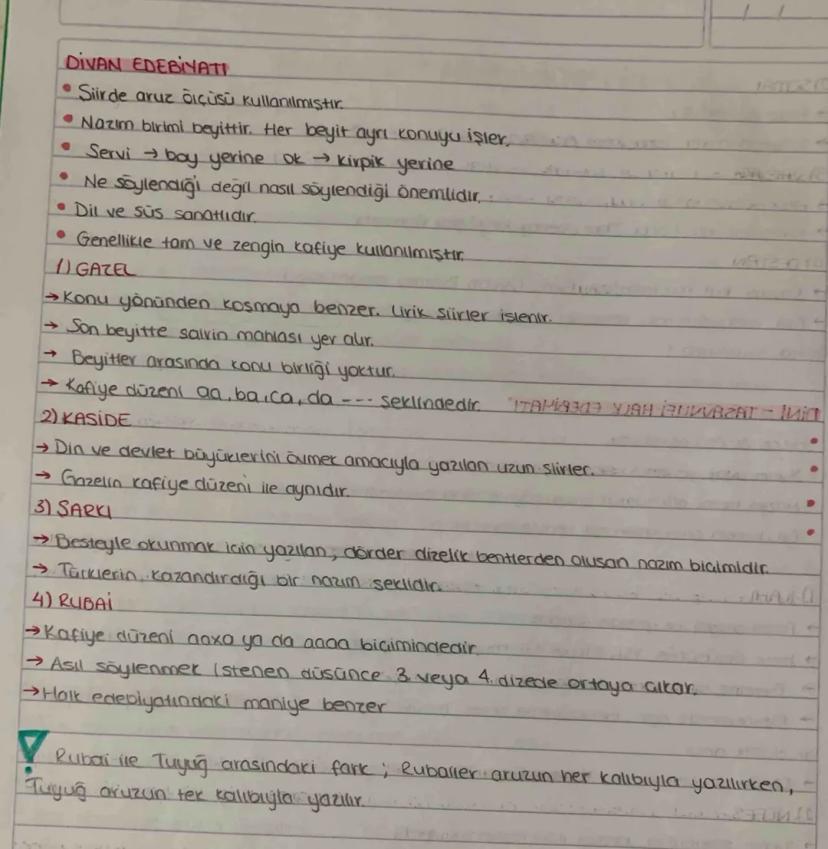 DİVAN EDEBİYATI
• Şiirde aruz ölçüsü kullanılmıştır.
• Nazım birimi beyittir. Her beyit ayrı konuyu işler.
• Servi → boy yerine ok → kirpik yerine
• Ne söylendiği değil nasıl söylendiği önemlidir.
• Dil ve süs sanatlıdır.
• Genellikle tam ve zengin kafiye kullanılmıştır.
1) GAZEL
→ Konu yönünden koşmaya benzer. Lirik şiirler işlenir.
→ Son beyitte şairin mahlası yer alır.
→ Beyitler arasında konu birliği yoktur.
→ Kafiye düzeni aa, ba, ca, da --- şeklindedir.
2) KASİDE
→ Din ve devlet büyüklerini övmek amacıyla yazılan uzun şiirler.
→ Gazelin kafiye düzeni ile aynıdır.
3) ŞARKI
→ Besteyle okunmak için yazılan, dörder dizelik bentlerden oluşan nazım biçimidir.
→ Türklerin kazandırdığı bir nazım şeklidir.
4) RUBAİ
→ Kafiye düzeni aaxa ya da aaaa biçimindedir.
→ Asıl söylenmek istenen düşünce 3. veya 4. dizede ortaya çıkar.
→ Halk edebiyatındaki maniye benzer
! Rubai ile Tuyuğ arasındaki fark ; Rubailer aruzun her kalıbıyla yazılırken,
Tuyuğ aruzun tek kalıbıyla yazılır.